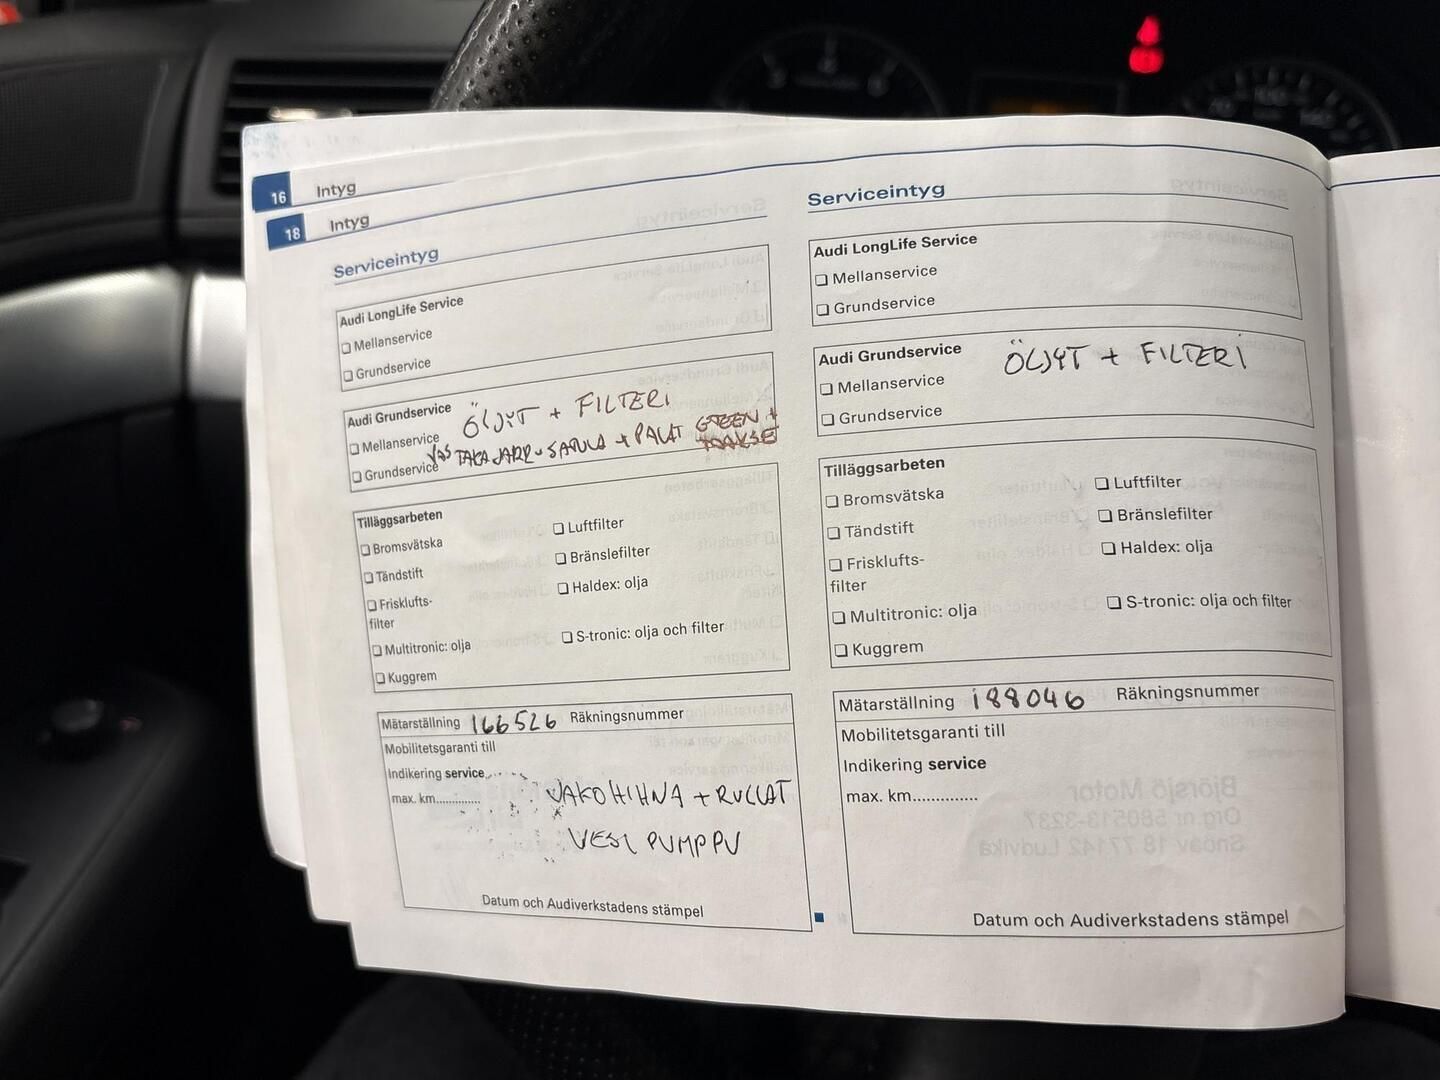 16 Intyg
18 Intyg
Serviceintyg
Audi LongLife Service
❏ Mellanservice
❏ Grundservice
Audi Grundservice ÖLJYT + FILTERI
❏ Mellanservice
❏ Grundservice VAS TAKAJARRUSATULA + PALAT
Tilläggsarbeten
❏ Bromsvätska ❏ Luftfilter
❏ Tändstift ❏ Bränslefilter
❏ Frisklufts-
filter ❏ Haldex: olja
❏ Multitronic: olja ❏ S-tronic: olja och filter
❏ Kuggrem
Mätarställning 166526 Räkningsnummer
Mobilitetsgaranti till
Indikering service
max. km.............. JAKOHIHNA + RULLAT
VESI PUMPPU
Datum och Audiverkstadens stämpel
Serviceintyg
Audi LongLife Service
❏ Mellanservice
❏ Grundservice
Audi Grundservice ÖLJYT + FILTERI
❏ Mellanservice
❏ Grundservice
Tilläggsarbeten
❏ Bromsvätska ❏ Luftfilter
❏ Tändstift ❏ Bränslefilter
❏ Frisklufts-
filter ❏ Haldex: olja
❏ Multitronic: olja ❏ S-tronic: olja och filter
❏ Kuggrem
Mätarställning 188046 Räkningsnummer
Mobilitetsgaranti till
Indikering service
max. km..............
Datum och Audiverkstadens stämpel